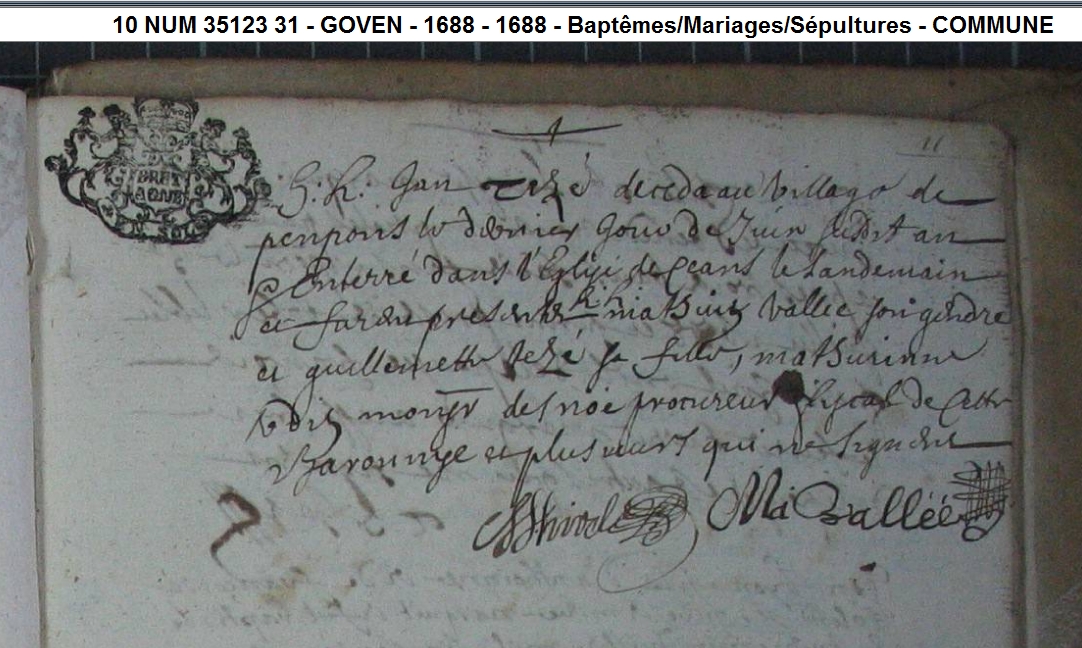 10 NUM 35123 31 - GOVEN - 1688 - 1688 - Baptêmes/Mariages/Sépultures - COMMUNE
11
DE
BRET
AGNE
h. h. Jan Tezé deceda au village de
penpons le dernier Jour de Juin sudit an
Enterré dans l'Eglise de Ceans le Landemain
et furent presents h h mathurin Vallee son gendre
et guillemette tezé sa fille, mathurinne
des noe procureur fiscal de Cette
Baronnye et plusieurs qui ne signent
Ma Vallée